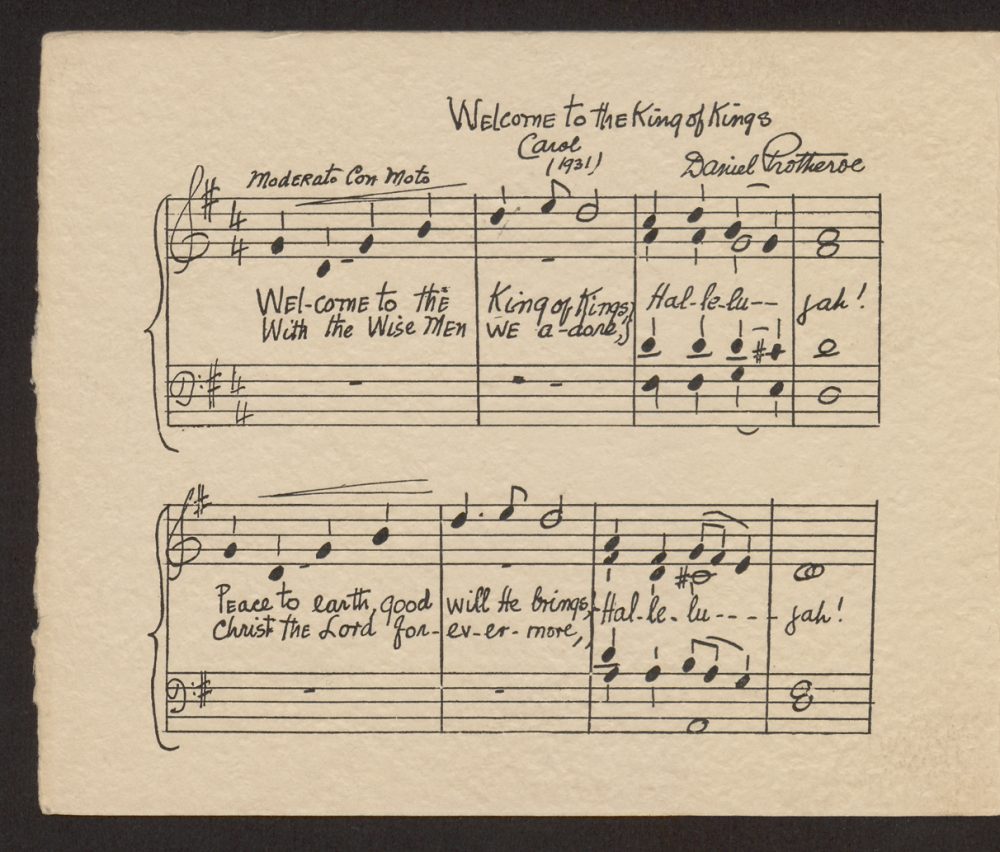 Welcome to the King of Kings
Carol
(1931)
Daniel Protheroe
Moderato Con Moto
4
4
Wel-come to the King of Kings, Hal-le-lu-- jah!
With the Wise Men we a-dore,
4
4
Peace to earth, good will He brings, Hal-le-lu---- jah!
Christ the Lord for-ev-er-more,